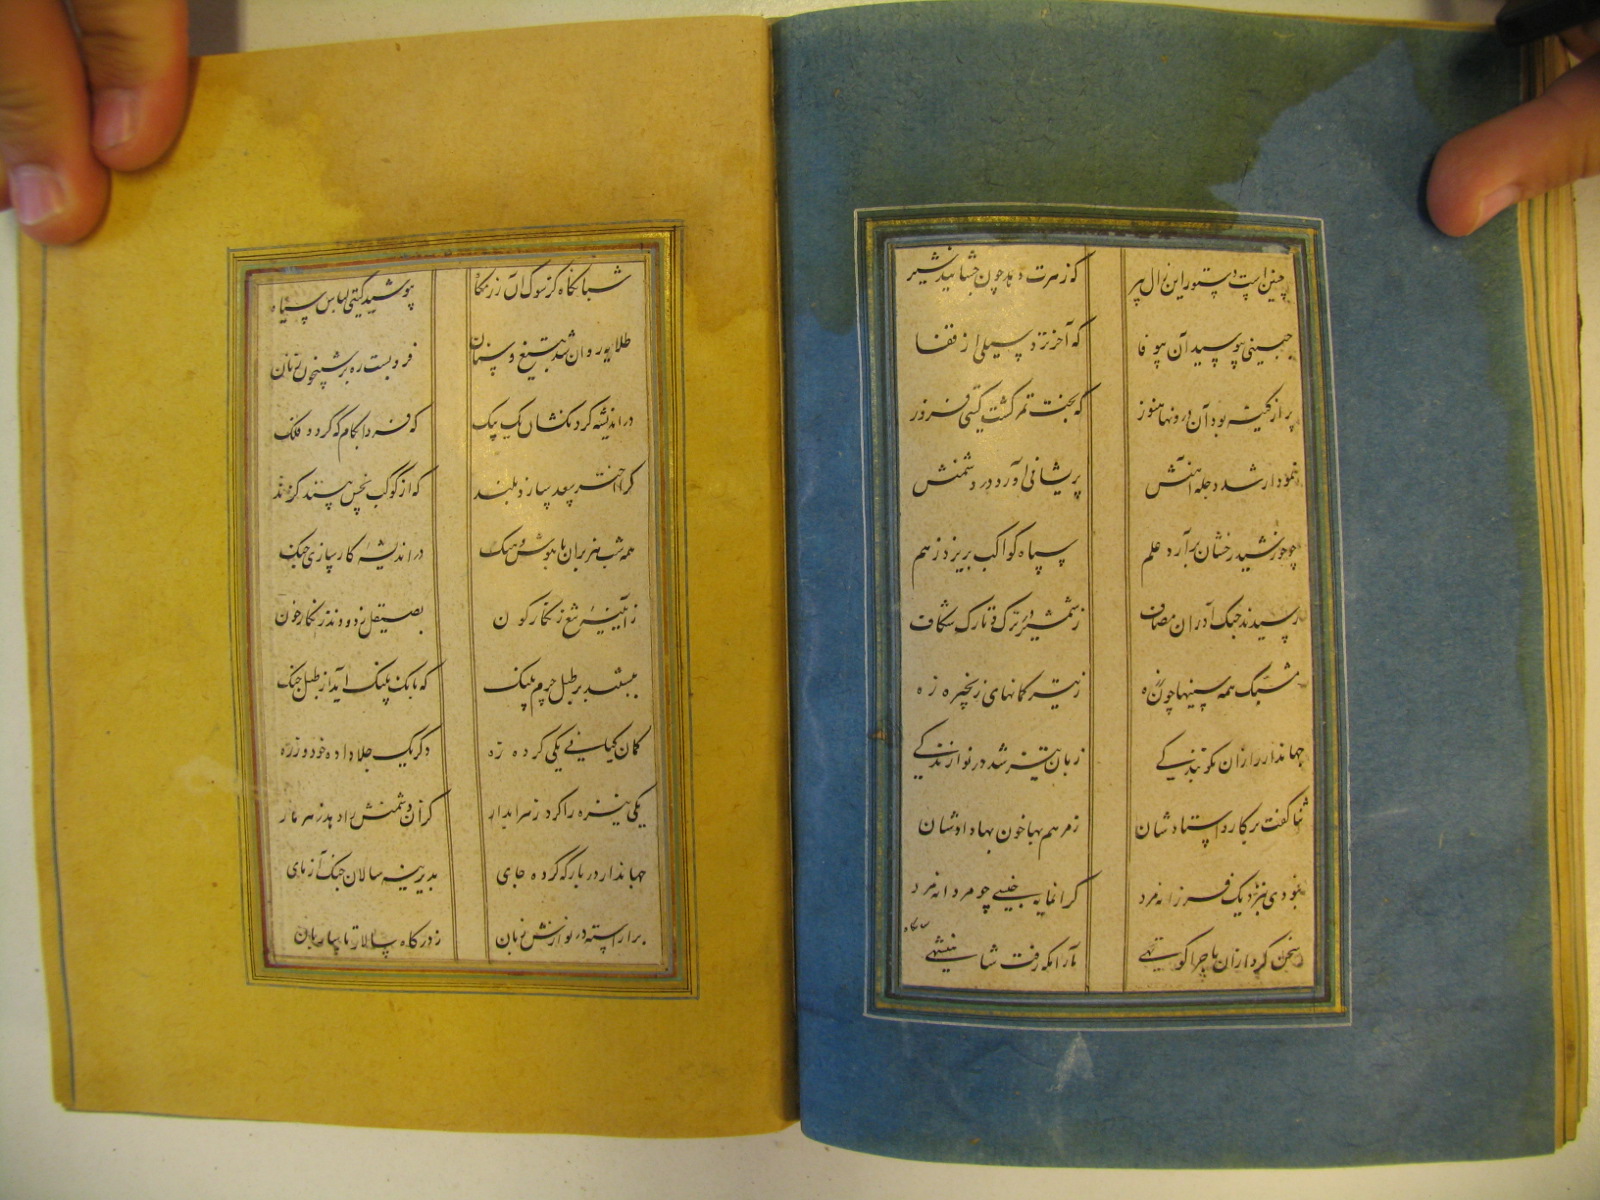 چنین است دستور این زال پیر که زهرت دهد چون چشانید شیر
جبینی نبوسید آن بیوفا که آخر نزد سیلی از قفا
پر از کینه بود آن درونها هنوز که بخت قمر گشت گیتی فروز
نمودار شد دجله آتش پریشانی آورد در دشمنش
چو خورشید رخشان برآرد علم سپاه کواکب بریزد ز هم
رسیدند جنگ آوران مصاف ز شمشیر بر ترک و تارک شکاف
مشبک همه سینها چون زره ز تیر کمانهای زنجیره زه
جهاندار از آن نکو بندگی زبان تیز شد در نوازندگی
ثنا گفت بر کار و استادشان ز مرهم بها خون بها دادشان
نبودی بنزدیک فرزانه مرد گرانمایه جنسی چو مردانه مرد
سخن کرد از آن ماجرا کوتهی بآرامگه رفت شاهنشهی
شبانگاه کز سوک آن زرنگار بپوشید گیتی لباس سیاه
طلایه روان شد بتیغ و سنان فرو بست ره بر شبیخون زنان
در اندیشه گردنکشان یک بیک که فردا بکام که گردد فلک
کرا اختر سعد سازد بلند که از کوکب نحس بیند گزند
همه شب هزبران با هوش و هنگ در اندیشه کارسازی جنگ
ز آیینه تیغ زنگار گون بصیقل زدودند زنگار خون
ببستند بر طبل چرم پلنگ که بانگ پلنگ آید از طبل جنگ
کمان کیانی یکی کرده زه دگر یک جلا داده خود و زره
یکی نیزه را کرد زهرابدار کزان دشمنش را دهد زهر مار
جهاندار در بارگه کرده جای بدیرینه سالان جنگ آزمای
برآراسته در نوازش زبان ز درگاه سالار تا پاسبان